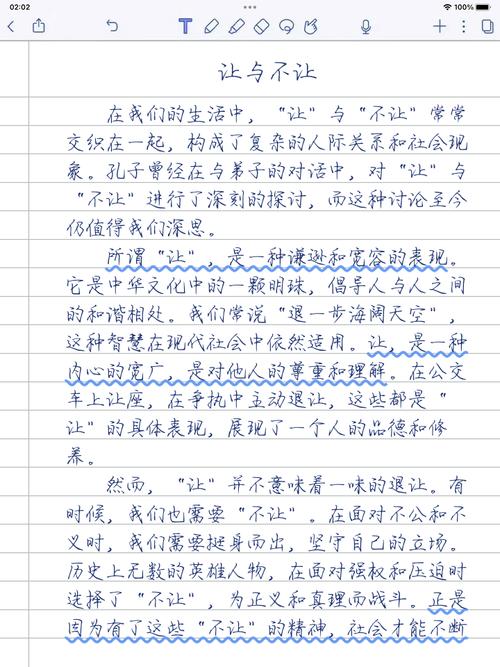 02:02
100%
T
让与不让
在我们的生活中，“让”与“不让”常常
交织在一起，构成了复杂的人际关系和社会现
象。孔子曾经在与弟子的对话中，对“让”与
“不让”进行了深刻的探讨，而这种讨论至今
仍值得我们深思。
所谓“让”，是一种谦逊和宽容的表现。
它是中华文化中的一颗明珠，倡导人与人之间
的和谐相处。我们常说“退一步海阔天空”，
这种智慧在现代社会中依然适用。让，是一种
内心的宽广，是对他人的尊重和理解。在公交
车上让座，在争执中主动退让，这些都是“
让”的具体表现，展现了一个人的品德和修
养。
然而，“让”并不意味着一味的退让。有
时候，我们也需要“不让”。在面对不公和不
义时，我们需要挺身而出，坚守自己的立场。
历史上无数的英雄人物，在面对强权和压迫时
选择了“不让”，为正义和真理而战斗。正是
因为有了这些“不让”的精神，社会才能不断